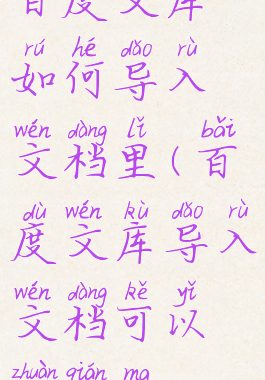 百度文库
rú hé dǎo rù
如何导入
wén dàng lǐ bǎi
文档里(百
dù wén kù dǎo rù
度文库导入
wén dàng kě yǐ
文档可以
zhuàn qián ma